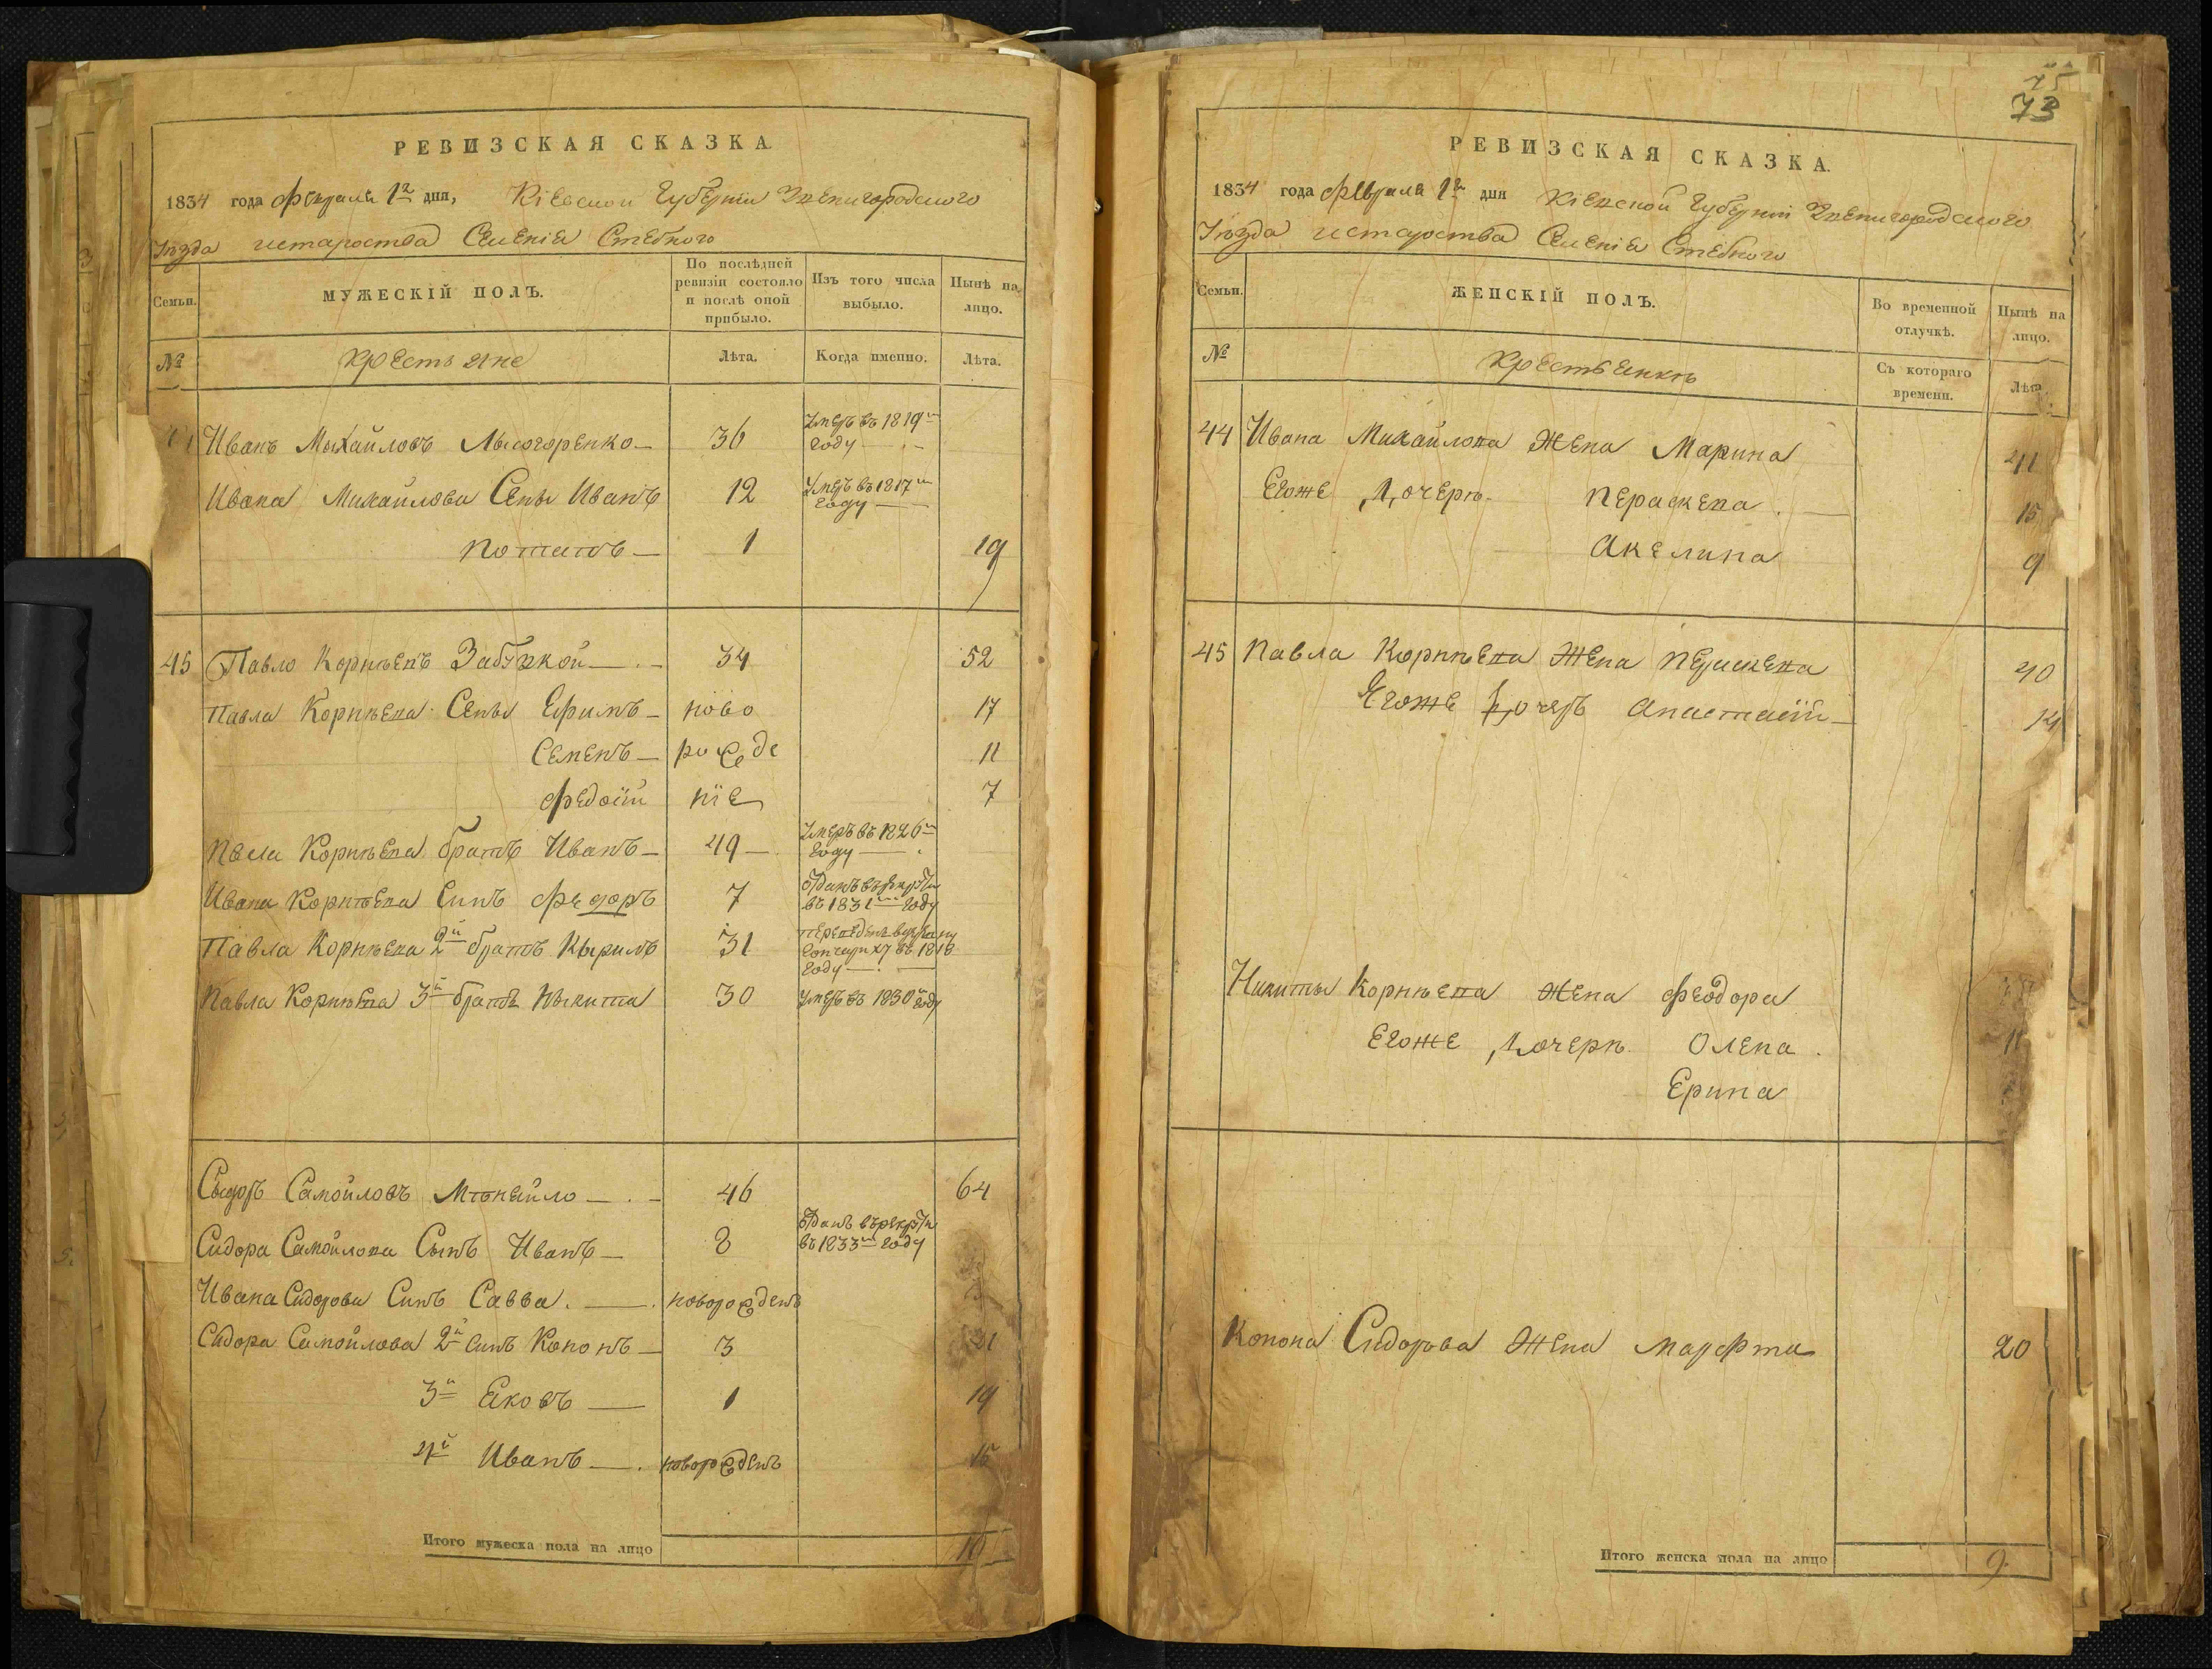 РЕВИЗСКАЯ СКАЗКА.
1834 года февраля 1го дня, Кіевской Губерніи Звенигородского
Уѣзда истароства Селенія Стебного
Семьи.
МУЖЕСКІЙ ПОЛЪ.
По послѣдней ревизіи состояло и послѣ оной прибыло.
Изъ того числа выбыло.
Нынѣ на лицо.
№
Крестьяне
Лѣта.
Когда именно.
Лѣта.
Иванъ Михайловъ Лысогоренко 36 Умеръ въ 1819м году
Ивана Михайлова Сены Иванъ 12 Умеръ въ 1817м году
Потапъ 1 19
45 Павло Корнѣевъ 34 52
Павла Корнѣева Сены Ефимъ ново 17
Семенъ рожде 11
Федосій ніе 7
Павла Корнѣева братъ Иванъ 49 Умеръ въ 1826м году
Ивана Корнѣева Синъ Федоръ 7 отданъ въ рекруты въ 1831м году
Павла Корнѣева 2й братъ Кирилъ 31 въ 1818 году
Павла Корнѣева 3й братъ Никита 30 Умеръ въ 1830м году
Сидоръ Самойловъ 46 64
Сидора Самойлова Сынъ Иванъ 8 отданъ въ рекруты въ 1833м году
Ивана Сидорова Синъ Савва. новорожденъ
Сидора Самойлова 2й Синъ Кононъ 3 21
3й Яковъ 1 19
4й Иванъ новорожденъ 15
Итого мужеска пола на лицо 10
75
73
РЕВИЗСКАЯ СКАЗКА.
1834 года февраля 1го дня Кіевской Губерніи Звенигородского
Уѣзда истароства Селенія Стебного
Семьи.
ЖЕНСКІЙ ПОЛЪ.
Во временной отлучкѣ.
Нынѣ на лицо.
№
Крестьянкѣ
Съ котораго времени.
Лѣта
44 Ивана Михайлова Жена Марина 41
Егоже Дочерѣ Пераскева 15
Акелина 9
45 Павла Корнѣева Жена Пераскева 40
Егоже Дочеръ Анастасій 14
Никиты Корнѣева Жена Феодора
Егоже Дочерѣ Олена 11
Ерина
Конона Сидорова Жена Марфта 20
Итого женска пола на лицо 9.